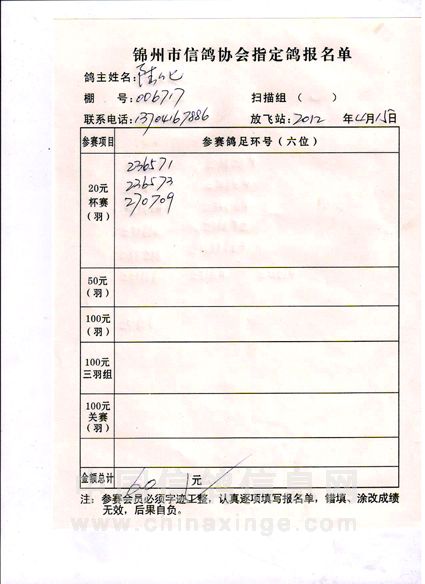 锦州市信鸽协会指定鸽报名单
鸽主姓名:陆
棚 号:006717 扫描组 （ ）
联系电话:13704167886 放飞站:2012 年4月15日
参赛项目 参赛鸽足环号（六位）
20元
杯赛
（羽）
236571
236573
270709
50元
（羽）
100元
（羽）
100元
三羽组
100元
关赛
（羽）
金额总计 60 元
注：参赛会员必须字迹工整，认真逐项填写报名单，错填、涂改成绩
无效，后果自负。
中国信鸽信息网
www.chinaxinge.com